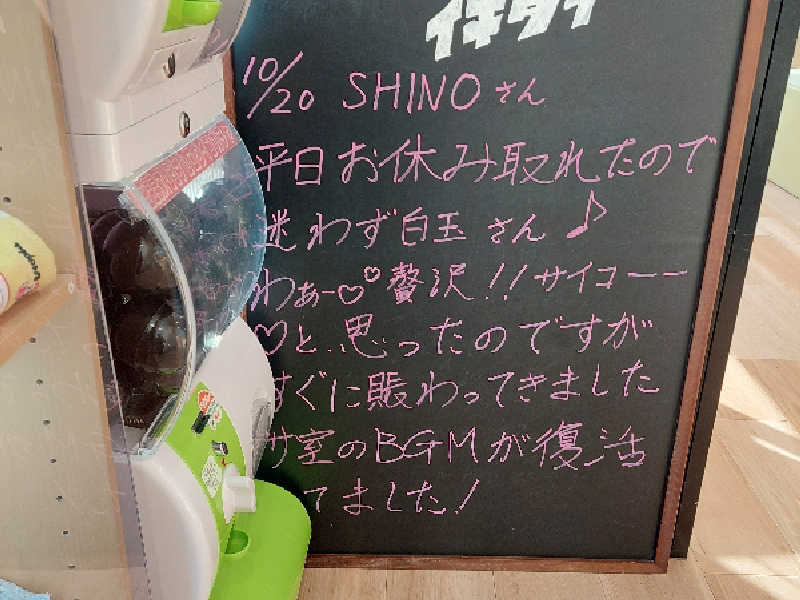 イキタイ
10/20 SHINOさん
平日お休み取れたので
迷わず白玉さん♪
わぁー♡♡贅沢!!サイコーー
♡と思ったのですが
すぐに賑わってきました
サ室のBGMが復活
てました!